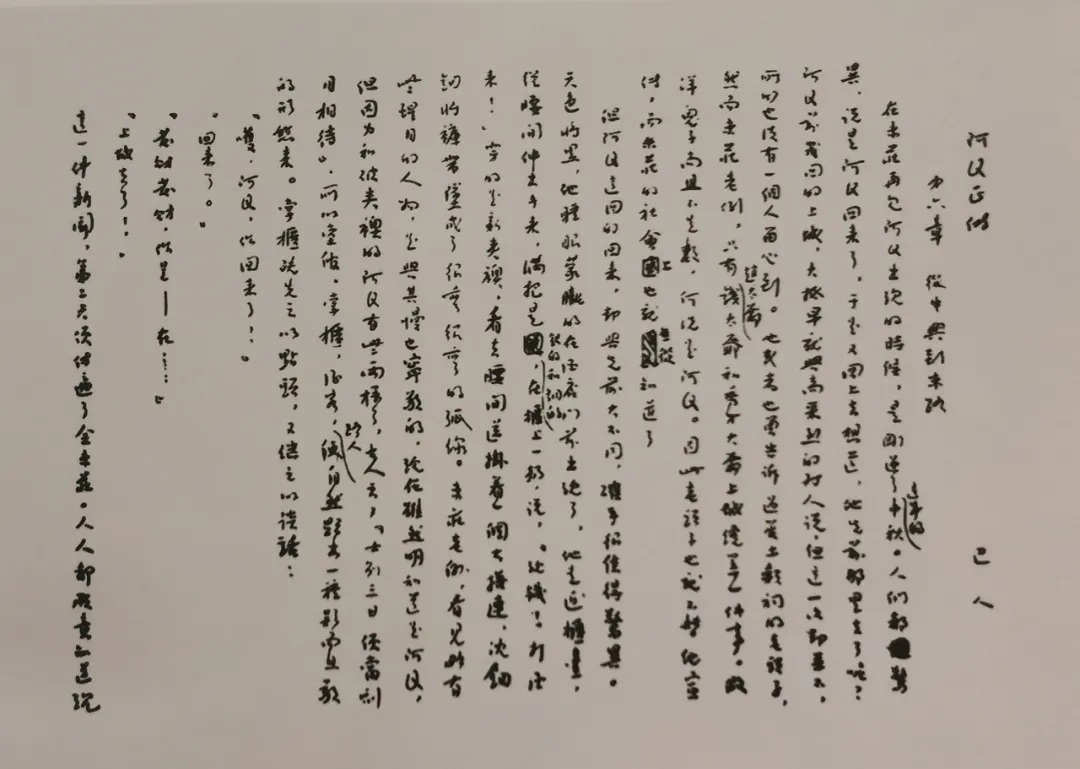 阿Q正傳
第六章　從中興到末路
巴人
在未莊再見阿Q出現的時候，是剛過了這年的中秋。人们都驚
異，說是阿Q回來了，于是又回上去想道，他先前那里去了呢？
阿Q前幾回的上城，大抵早就興高采烈的對人說，但這一次却並不，
所以也没有一個人留心到。他或者也曾告訴過管土穀祠的老頭子，
然而未莊老例，只有趙太爺錢太爺和秀才大爺上城纔算一件事。假
洋鬼子尚且不足數，何況是阿Q。因此老頭子也就不替他宣
傳，而未莊的社會上也就無從知道了
但阿Q這回的回來，却與先前大不同，確乎很值得驚異。
天色將黑，他睡眼蒙朧的在酒店門前出現了，他走近櫃臺，
從腰間伸出手來，滿把是銀的和銅的，在櫃上一扔，說，“現錢！打酒
來！”穿的是新夹襖，看去腰間還掛着一個大搭連，沈鈿
鈿的將褲帶墜成了很彎很彎的弧線。未莊老例，看見略有
些醒目的人物，是與其慢也寧敬的，現在雖然明知道是阿Q，
但因为和破夹襖的阿Q有些兩樣了，古人云，“士别三日便當刮
目相待”，所以堂倌，掌櫃，酒客，路人，便自然顯出一種疑而且敬
的形態來。掌櫃既先之以點頭，又繼之以談話：
“嚄，阿Q，你回來了！”
“回來了。”
“發財發財，你是——在……”
“上城去了！”
這一件新聞，第二天便傳遍了全未莊。人人都願意知道現